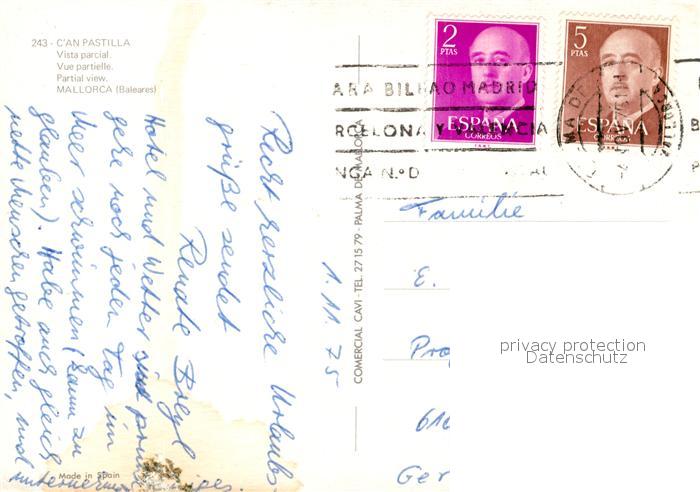 243 - C'AN PASTILLA
Vista parcial.
Vue partielle.
Partial view.
MALLORCA (Baleares)
2
PTAS
ESPAÑA
CORREOS
5
PTAS
ESPAÑA
CORREOS
ARA BILBAO MADRID
RCELONA Y VALENCIA
NGA N.º D
Recht herzliche Urlaubs-
grüße sendet
Renate
Hotel und Wetter sind prima
gehe noch jeden Tag im
Meer schwimmen (kaum zu
glauben). Habe auch gleich
nette Menschen getroffen, und
1.11.75
COMERCIAL CAVI - TEL. 27 15 79 - PALMA DE MALLORCA
Familie
E.
616
Ger
privacy protection
Datenschutz
Made in Spain